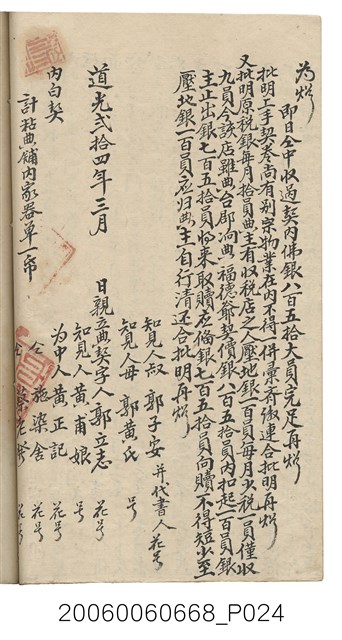 為炤
即日仝中收過契內佛銀八百五拾大員完足再炤
批明上手契卷尚有別宗物業在內不得一併彙齊繳連合批明再炤
又批明原稅銀每月拾員典主有收稅店之人壓地銀一百員每月少稅一員僅收
九員今該店雖典合郡洞典福德爺契價銀八百五拾員內扣起一百員銀
主止出銀七百五拾員將來取贖應備銀七百五拾員向贖不得短少至
壓地銀一百員應歸典主自行清還合批明再炤
知見人叔 郭子安 并代書人 花号
知見人母 郭黃氏 号
道光弍拾四年三月 日親立典契字人郭立志
知見人黃甫娘 号
為中人黃正記 花号
仝 施梁舍 花号
花号
內白契
計粘典鋪內家器單一帋
20060060668_P024